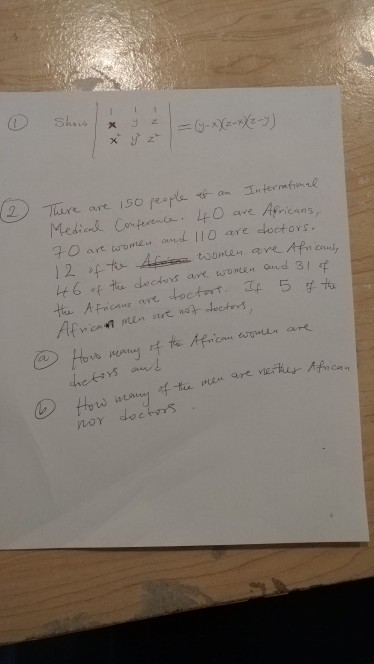 ① Show | 1 1 1 |
| x y z | = (y-x)(z-x)(z-y)
| x² y² z² |
② There are 150 people at an International
Medical Conference. 40 are Africans,
70 are women and 110 are doctors.
12 of the women are Africans,
46 of the doctors are women and 31 of
the Africans are doctors. If 5 of the
African men are not doctors,
ⓐ How many of the African women are
doctors and
ⓑ How many of the men are neither African
nor doctors.